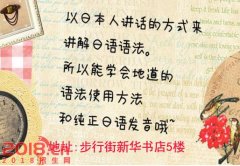 以日本人讲话的方式来
讲解日语语法。
所以能学会地道的
语法使用方法
和纯正日语发音哦~
2018.cn
2018招生网
地址:步行街新华书店5楼